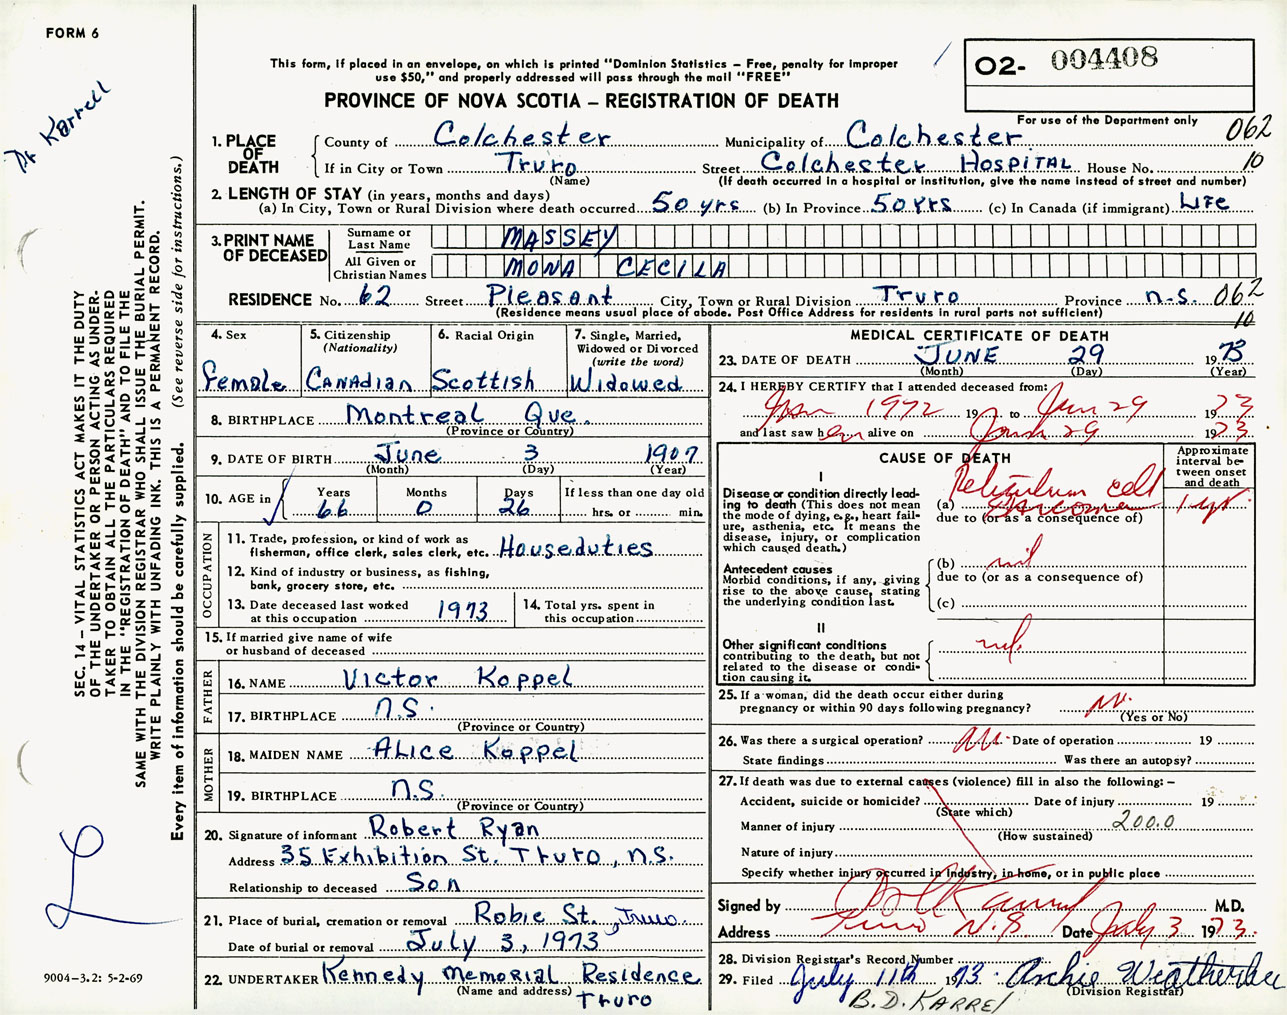 FORM 6
Dr Karrell
SEC. 14 – VITAL STATISTICS ACT MAKES IT THE DUTY
OF THE UNDERTAKER OR PERSON ACTING AS UNDER-
TAKER TO OBTAIN ALL THE PARTICULARS REQUIRED
IN THE "REGISTRATION OF DEATH" AND TO FILE THE
SAME WITH THE DIVISION REGISTRAR WHO SHALL ISSUE THE BURIAL PERMIT.
WRITE PLAINLY WITH UNFADING INK. THIS IS A PERMANENT RECORD.
Every item of information should be carefully supplied. (See reverse side for instructions.)
9004–3.2: 5-2-69
This form, if placed in an envelope, on which is printed "Dominion Statistics – Free, penalty for improper
use $50," and properly addressed will pass through the mail "FREE"
PROVINCE OF NOVA SCOTIA – REGISTRATION OF DEATH
O2- 004408
For use of the Department only
062
10
1. PLACE OF DEATH County of Colchester Municipality of Colchester
If in City or Town Truro Street Colchester HOSPITAL House No.
(Name) (If death occurred in a hospital or institution, give the name instead of street and number)
2. LENGTH OF STAY (in years, months and days)
(a) In City, Town or Rural Division where death occurred 50 yrs (b) In Province 50 yrs (c) In Canada (if immigrant) Life
3. PRINT NAME OF DECEASED Surname or Last Name MASSEY
All Given or Christian Names MONA CECILA
RESIDENCE No. 62 Street Pleasant City, Town or Rural Division Truro Province n.s. 062
(Residence means usual place of abode. Post Office Address for residents in rural parts not sufficient) 10
4. Sex Female
5. Citizenship (Nationality) CANADian
6. Racial Origin Scottish
7. Single, Married, Widowed or Divorced (write the word) Widowed
8. BIRTHPLACE Montreal Que.
(Province or Country)
9. DATE OF BIRTH June 3 1907
(Month) (Day) (Year)
10. AGE in Years 66 Months 0 Days 26 If less than one day old
hrs. or min.
OCCUPATION
11. Trade, profession, or kind of work as
fisherman, office clerk, sales clerk, etc. Houseduties
12. Kind of industry or business, as fishing,
bank, grocery store, etc.
13. Date deceased last worked at this occupation 1973
14. Total yrs. spent in this occupation
15. If married give name of wife
or husband of deceased
FATHER
16. NAME Victor Koppel
17. BIRTHPLACE n.s.
(Province or Country)
MOTHER
18. MAIDEN NAME Alice Koppel
19. BIRTHPLACE n.s.
(Province or Country)
20. Signature of informant Robert Ryan
Address 35 Exhibition St. Truro, n.s.
Relationship to deceased Son
21. Place of burial, cremation or removal Robie St. Truro
Date of burial or removal July 3, 1973
22. UNDERTAKER Kennedy Memorial Residence
(Name and address) Truro
MEDICAL CERTIFICATE OF DEATH
23. DATE OF DEATH JUNE 29 1973
(Month) (Day) (Year)
24. I HEREBY CERTIFY that I attended deceased from:
1972 19 to Jun 29 1973
and last saw her alive on 29 1973
CAUSE OF DEATH
Approximate interval between onset and death
I
Disease or condition directly lead-
ing to death (This does not mean
the mode of dying, e.g., heart fail-
ure, asthenia, etc. It means the
disease, injury, or complication
which caused death.)
(a) Reticulum cell Sarcoma 1 yr
due to (or as a consequence of)
Antecedent causes
Morbid conditions, if any, giving
rise to the above cause, stating
the underlying condition last.
(b) nil
due to (or as a consequence of)
(c)
II
Other significant conditions
contributing to the death, but not
related to the disease or condi-
tion causing it.
nil
25. If a woman, did the death occur either during
pregnancy or within 90 days following pregnancy?
(Yes or No)
26. Was there a surgical operation? Date of operation 19
State findings Was there an autopsy?
27. If death was due to external causes (violence) fill in also the following: –
Accident, suicide or homicide? Date of injury 19
(State which)
Manner of injury 200.0
(How sustained)
Nature of injury
Specify whether injury occurred in industry, in home, or in public place
Signed by M.D.
Address Truro N.S Date July 3 1973.
28. Division Registrar's Record Number
29. Filed July 11th 1973. Archie Weatherbee
(Division Registrar)
B.D. KARREL